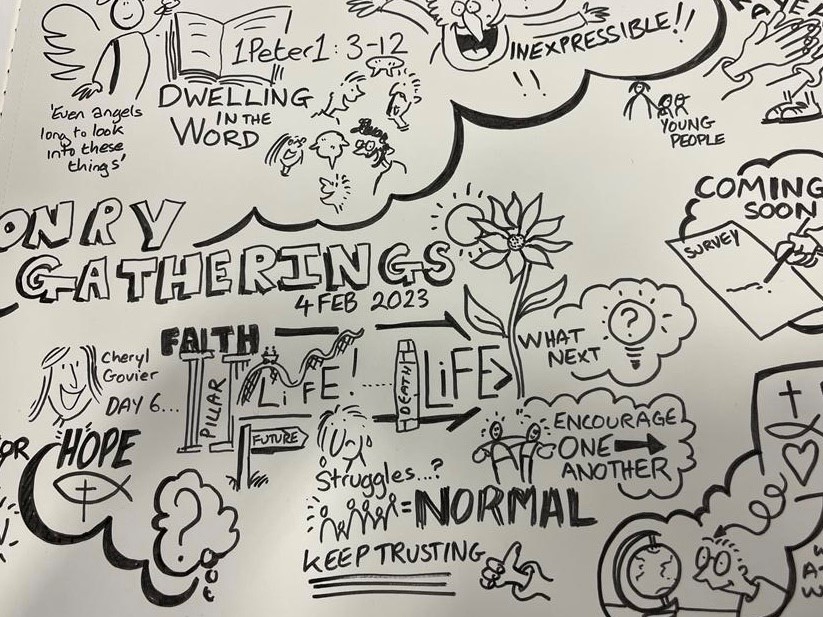 1Peter1: 3-12
DWELLING
IN THE
WORD
'Even angels
long to look
into these
things'
INEXPRESSIBLE!!
!!
YOUNG
PEOPLE
COMING
SOON
SURVEY
ONRY
GATHERINGS
4 FEB 2023
FAITH
Cheryl
Govier
DAY 6...
PILLAR
LiFE!
DEATH
LiFE>
WHAT
NEXT
?
FUTURE
ENCOURAGE
ONE
ANOTHER
OR
HOPE
?
Struggles...?
=NORMAL
KEEP TRUSTING